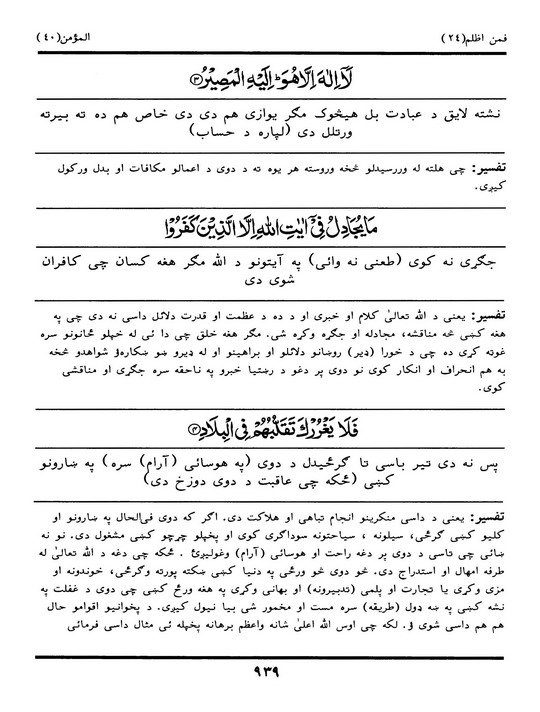 فمن اظلم (٢٤)
المؤمن (٤٠)
لَآ اِلٰهَ اِلَّا هُوَ ؕ اِلَيْهِ الْمَصِيْرُ ﴿٣﴾
نشته لایق د عبادت بل هیڅوک مگر یوازی هم دی دی خاص هم ده ته بیرته
ورتلل دی (لپاره د حساب)
تفسیر: چی هلته له وررسیدلو څخه وروسته هر یوه ته د دوی د اعمالو مکافات او بدل ورکول
کیږی.
مَا يُجَادِلُ فِيْٓ اٰيٰتِ اللّٰهِ اِلَّا الَّذِيْنَ كَفَرُوْا
جگړی نه کوی (طعنی نه وائی) په آیتونو د الله مگر هغه کسان چی کافران
شوی دی
تفسیر: یعنی د الله تعالیٰ کلام او خبری او د ده د عظمت او قدرت دلائل داسی نه دی چی په
هغه کښی څه مناقشه، مجادله او جگړه وکړه شی. مگر هغه خلق چی دا ئی له خپلو ځانونو سره
غوټه کړی ده چی د خورا (ډیر) روښانو دلائلو او براهینو او له ډیرو ښو ښکارهؤ شواهدو څخه
به هم انحراف او انکار کوی نو دوی پر دغو د رښتیا خبرو په ناحقه سره جگړی او مناقشی
کوی.
فَلَا يَغْرُرْكَ تَقَلُّبُهُمْ فِي الْبِلَادِ ﴿٤﴾
پس نه دی تیر باسی تا گرځیدل د دوی (په هوسائی (آرام) سره) په ښارونو
کښی (ځکه چی عاقبت د دوی دوزخ دی)
تفسیر: یعنی د داسی منکرینو انجام تباهی او هلاکت دی. اگر که دوی فی‌الحال په ښارونو او
کلیو کښی گرځی، سیلونه ، سیاحتونه سوداگری کوی او پخپلو چړچو کښی مشغول دی. نو نه
ښائی چی تاسی د دوی پر دغه راحت او هوسائی (آرام) وغولیږئ . ځکه چی دغه د الله تعالیٰ له
طرفه امهال او استدراج دی. څو دوی څو ورځی په دنیا کښی ښکته پورته وگرځی، خوندونه او
مزی وکړی یا تجارت او پلمی (تدبیرونه) او بهانی وکړی په هغه ورځ کښی چی دوی د غفلت په
نشه کښی په ښه ډول (طریقه) سره مست او مخمور شی بیا نیول کیږی. د پخوانیو اقوامو حال
هم هم داسی شوی ؤ. لکه چی اوس الله اعلیٰ شانه واعظم برهانه پخپله ئی مثال داسی فرمائی
٩٣٩